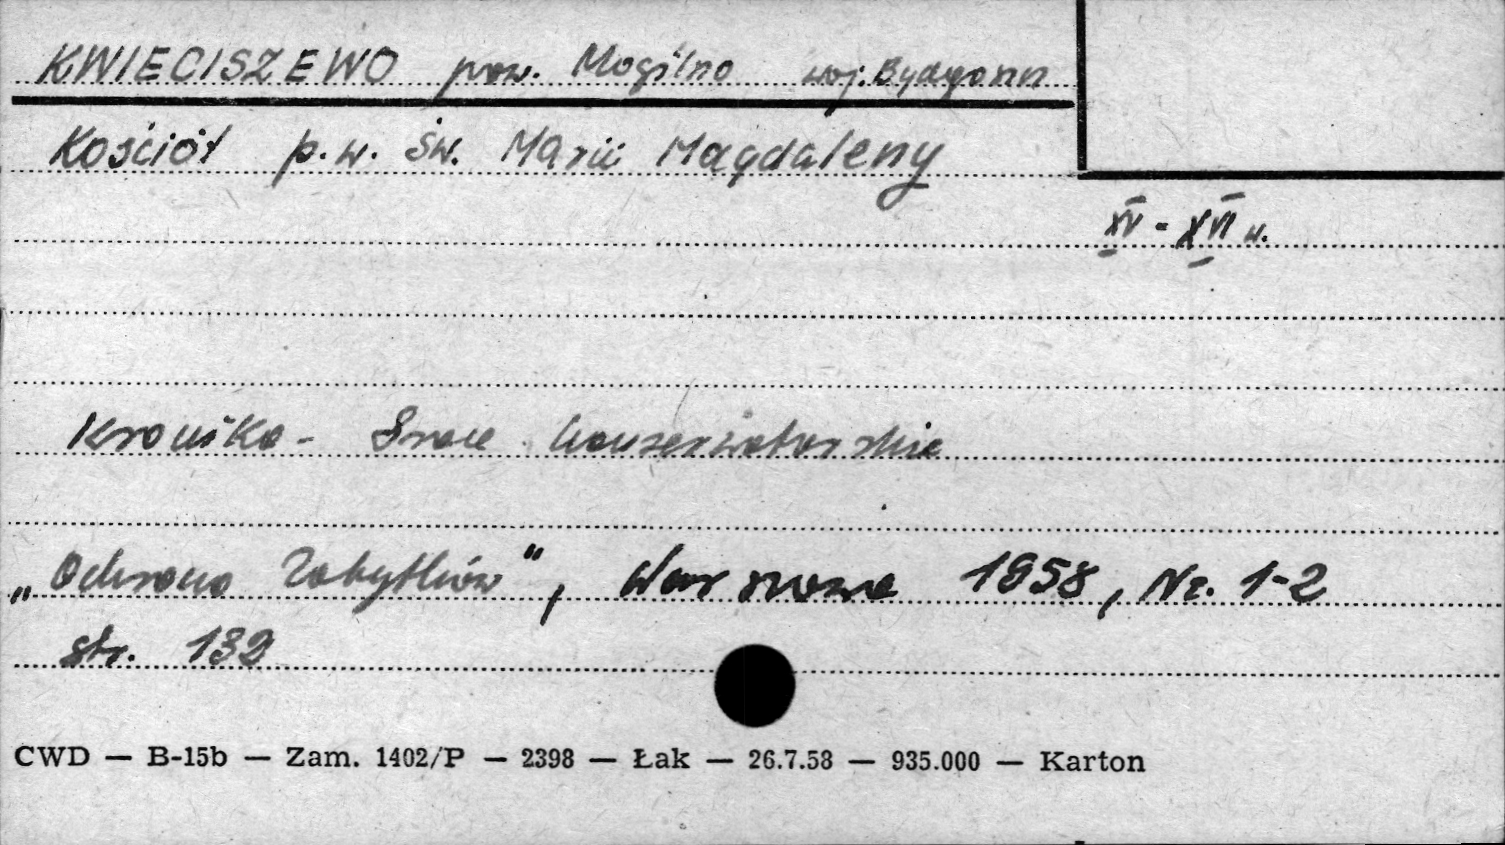 KWIECISZEWO pow. Mogilno woj. Bydgoszcz
Kościół p.w. św. Marii Magdaleny
XV - XVI w.
Kronika - Prace konserwatorskie
„Ochrona Zabytków”, Warszawa 1958, Nr. 1-2
str. 132
CWD — B-15b — Zam. 1402/P — 2398 — Łak — 26.7.58 — 935.000 — Karton